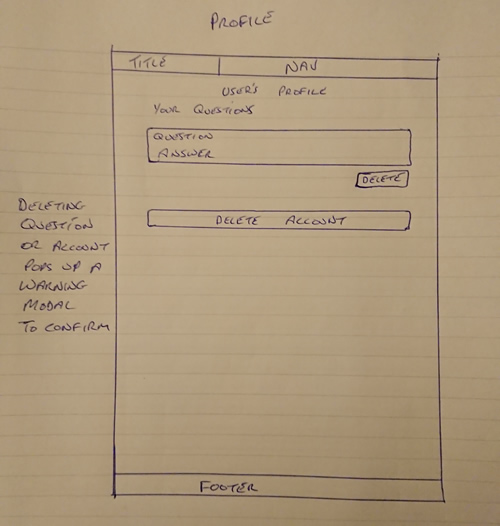 PROFILE
TITLE NAV
USER'S PROFILE
YOUR QUESTIONS
QUESTION
ANSWER
DELETE
DELETE ACCOUNT
DELETING
QUESTION
OR ACCOUNT
POPS UP A
WARNING
MODAL
TO CONFIRM
FOOTER